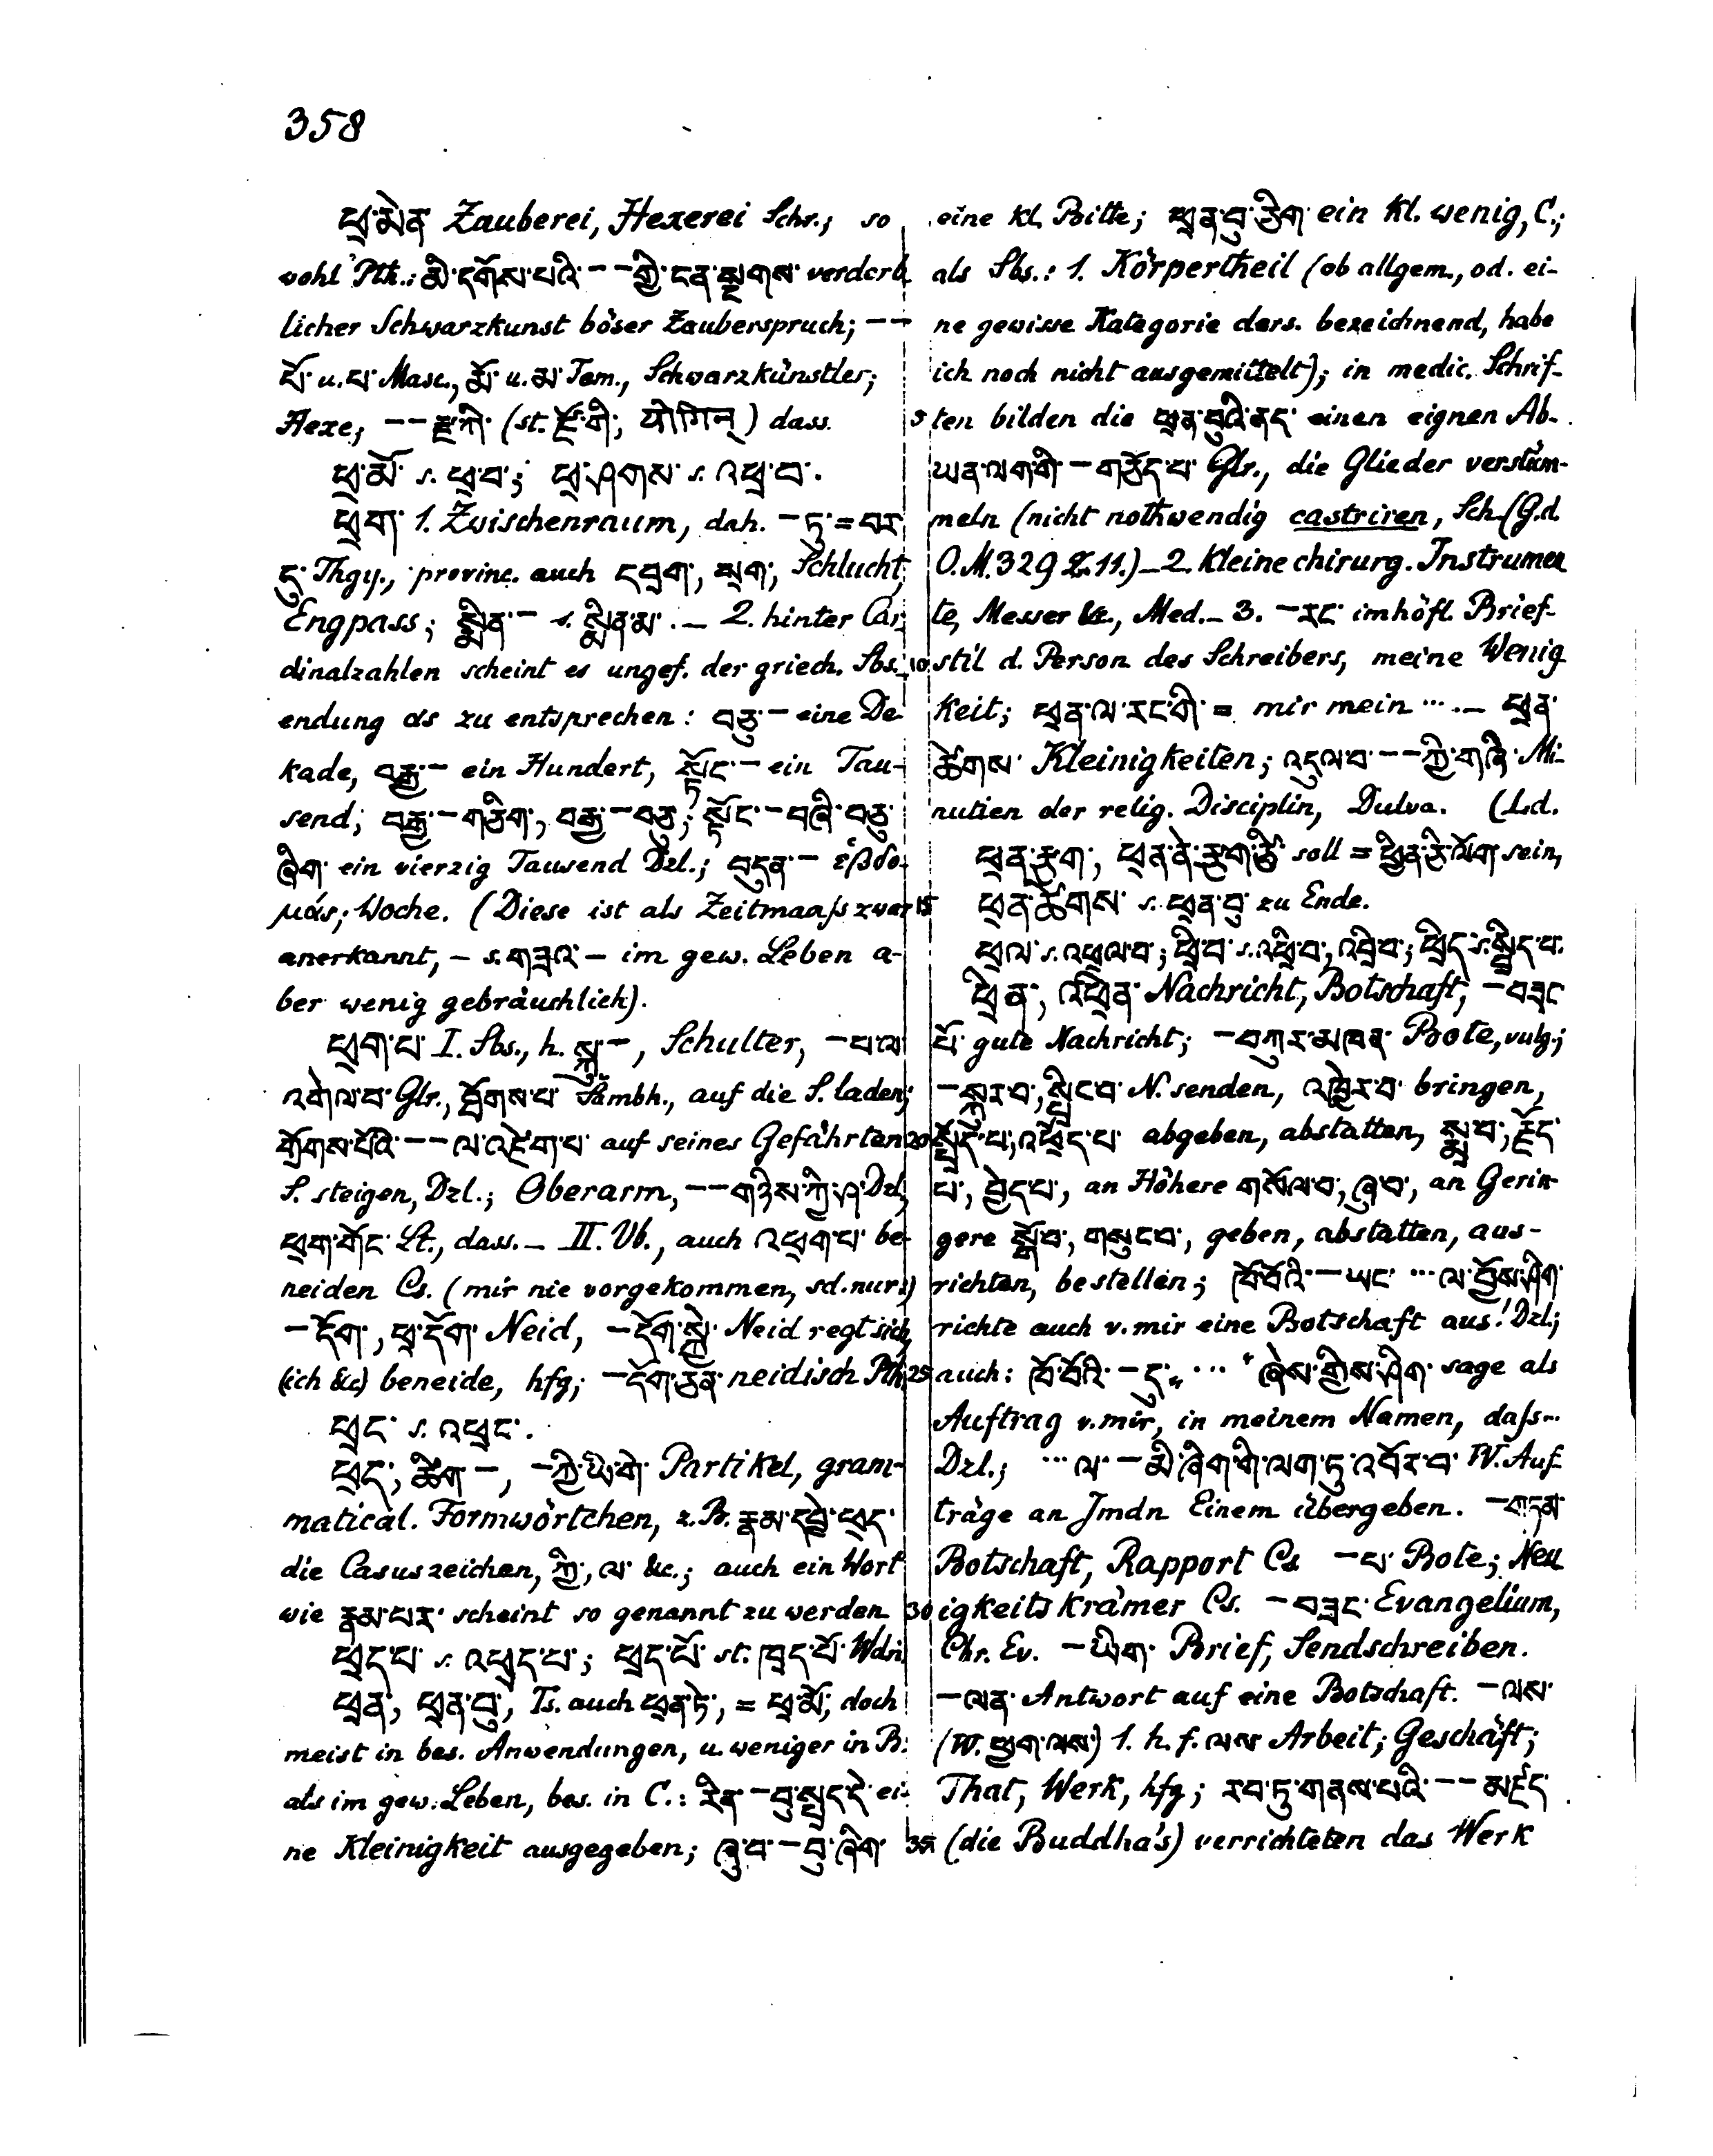 358
ཕྲ་མེན་ Zauberei, Hexerei Schr.; so
wohl Pth.: མི་དགོས་པའི་ – – གྱི་ངན་སྔགས་ verderb
licher Schwarzkunst böser Zauberspruch; – –
པོ་ u. པ་ Masc., མོ་ u. མ་ Fem., Schwarzkünstler;
Hexe; – – རྫ་ཀི་ (st. རྫོ་གི་; योगिन्) dass.
ཕྲ་མོ་ s. ཕྲ་བ་; ཕྲ་ཤགས་ s. འཕྲ་བ་.
ཕྲག་ 1. Zwischenraum, dah. – ཏུ་ = བར་
དུ་ Thgy., provinc. auch དབྲག་, སྲག་, Schlucht,
Engpass; སྨིན་ – s. སྨིན་མ་. – 2. hinter Car-
dinalzahlen scheint es ungef. der griech. Sbs.-
endung ας zu entsprechen: བཅུ་ – eine De
kade, བརྒྱ་ – ein Hundert, སྟོང་ – ein Tau-
send; བརྒྱ་ – གཅིག་, བརྒྱ་ – བཅུ་; སྟོང་ – བཞི་བཅུ་
ཞིག་ ein vierzig Tausend Dzl.; བདུན་ – ἑβδο-
μάς; Woche. (Diese ist als Zeitmaaſs zwar
anerkannt, – s. གཟའ་ – im gew. Leben a-
ber wenig gebräuchlich).
ཕྲག་པ་ I. Sbs., h. སྐུ་ –, Schulter, – པ་ལ་
འགེལ་བ་ Glr., སྤྲོགས་པ་ Sambh., auf die S. laden;
གྲོགས་པོའི་ – – ལ་འཛེག་པ་ auf seines Gefährten
S. steigen, Dzl.; Oberarm, – – གཉིས་ཀྱི་ཤ་ Dzl.,
ཕྲག་གོང་ Lt., dass. – II. Vb., auch འཕྲག་པ་ be-
neiden Cs. (mir nie vorgekommen, sd. nur:)
– དོག་, ཕྲ་དོག་ Neid, – དོག་སྐྱེ་ Neid regt sich,
(ich &c) beneide, hfg; – དོག་ཅན་ neidisch Pth;
ཕྲང་ s. འཕྲང་.
ཕྲད་, ཚིག་ –, – ཀྱི་ཡི་གེ་ Partikel, gram-
matical. Formwörtchen, z. B. རྣམ་དབྱེ་ཕྲད་
die Casuszeichen, ཀྱི་, ལ་ &c.; auch ein Wort
wie རྣམ་པར་ scheint so genannt zu werden
ཕྲད་པ་ s. འཕྲད་པ་; ཕྲད་པོ་ st. ཁྲད་པོ་ Wdn.
ཕྲན་, ཕྲན་བུ་, Ts. auch ཕྲན་ཏེ་, = ཕྲ་མོ; doch
meist in bes. Anwendungen, u. weniger in B.
als im gew. Leben, bes. in C.: རིན་ – བུ་སྤྲད་དེ་ ei-
ne Kleinigkeit ausgegeben; ཞུ་བ་ – བུ་ཞིག་
eine kl. Bitte; ཕྲན་བུ་ཅིག་ ein kl. wenig, C.;
als Sbs.: 1. Körpertheil (ob allgem., od. ei-
ne gewisse Kategorie ders. bezeichnend, habe
ich noch nicht ausgemittelt); in medic. Schrif-
5 ten bilden die ཕྲན་བུའི་ནད་ einen eignen Ab-
ཡན་ལག་གི་ – གཅོད་པ་ Glr., die Glieder verstüm-
meln (nicht nothwendig castriren, Sch. (G.d.
O. M. 329 Z. 11.) – 2. kleine chirurg. Instrumen
te, Messer &c., Med. – 3. – རང་ im höfl. Brief-
10 stil d. Person des Schreibers, meine Wenig
keit; ཕྲན་ལ་རང་གི་ = mir mein ... – ཕྲན་
ཚེགས་ Kleinigkeiten; འདུལ་བ་ – – ཀྱི་གཞི་ Mi-
nutien der relig. Disciplin, Dulva. (Ld.
ཕྲན་རྩག་, ཕྲན་ནེ་རྩག་ཙེ་ soll = ཕྱིན་ཅི་ལོག་ sein,
15 ཕྲན་ཚོགས་ s. ཕྲན་བུ་ zu Ende.
ཕྲལ་ s. འཕྲལ་བ་; ཕྲི་བ་ s. འཕྲི་བ་, འབྲི་བ་; ཕྲིད་ s. སྤྲིད་པ་.
ཕྲིན་, འཕྲིན་ Nachricht, Botschaft, – བཟང་
པོ་ gute Nachricht; – བཀུར་མཁན་ Bote, vulg.;
– སྐུར་བ་, སྤྲིང་བ་ N. senden, འཁྱེར་བ་ bringen,
20 སྤྲོད་པ་, འཕྲོད་པ་ abgeben, abstatten, སྨྲ་བ་, རྗོད་
པ་, བྱེད་པ་, an Höhere གསོལ་བ་, ཞུ་བ་, an Gerin-
gere སྒོ་བ་, གསུང་བ་, geben, abstatten, aus-
richten, bestellen; ཁོ་བོའི་ – ཡང་ ... ལ་བྱོས་ཤིག་
richte auch v. mir eine Botschaft aus! Dzl;
25 auch: ཁོ་བོའི་ – དུ „ ... “ ཞེས་གྱིས་ཤིག་ sage als
Auftrag v. mir, in meinem Namen, daſs ...
Dzl.; ... ལ་ – མི་ཞིག་གི་ལག་ཏུ་འབོར་བ་ W. Auf
träge an Jmdn Einem übergeben. – གདམ་
Botschaft, Rapport Cs. – པ་ Bote; Neu
30 igkeitskrämer Cs. – བཟང་ Evangelium,
Chr. Ev. – ཡིག་ Brief, Sendschreiben.
– ལན་ Antwort auf eine Botschaft. – ལས་
(W. ཕྱག་ལས་) 1. h. f. ལས་ Arbeit; Geschäft;
That, Werk, hfg; རབ་ཏུ་གནས་པའི་ – – མཛད་
35 (die Buddha's) verrichteten das Werk